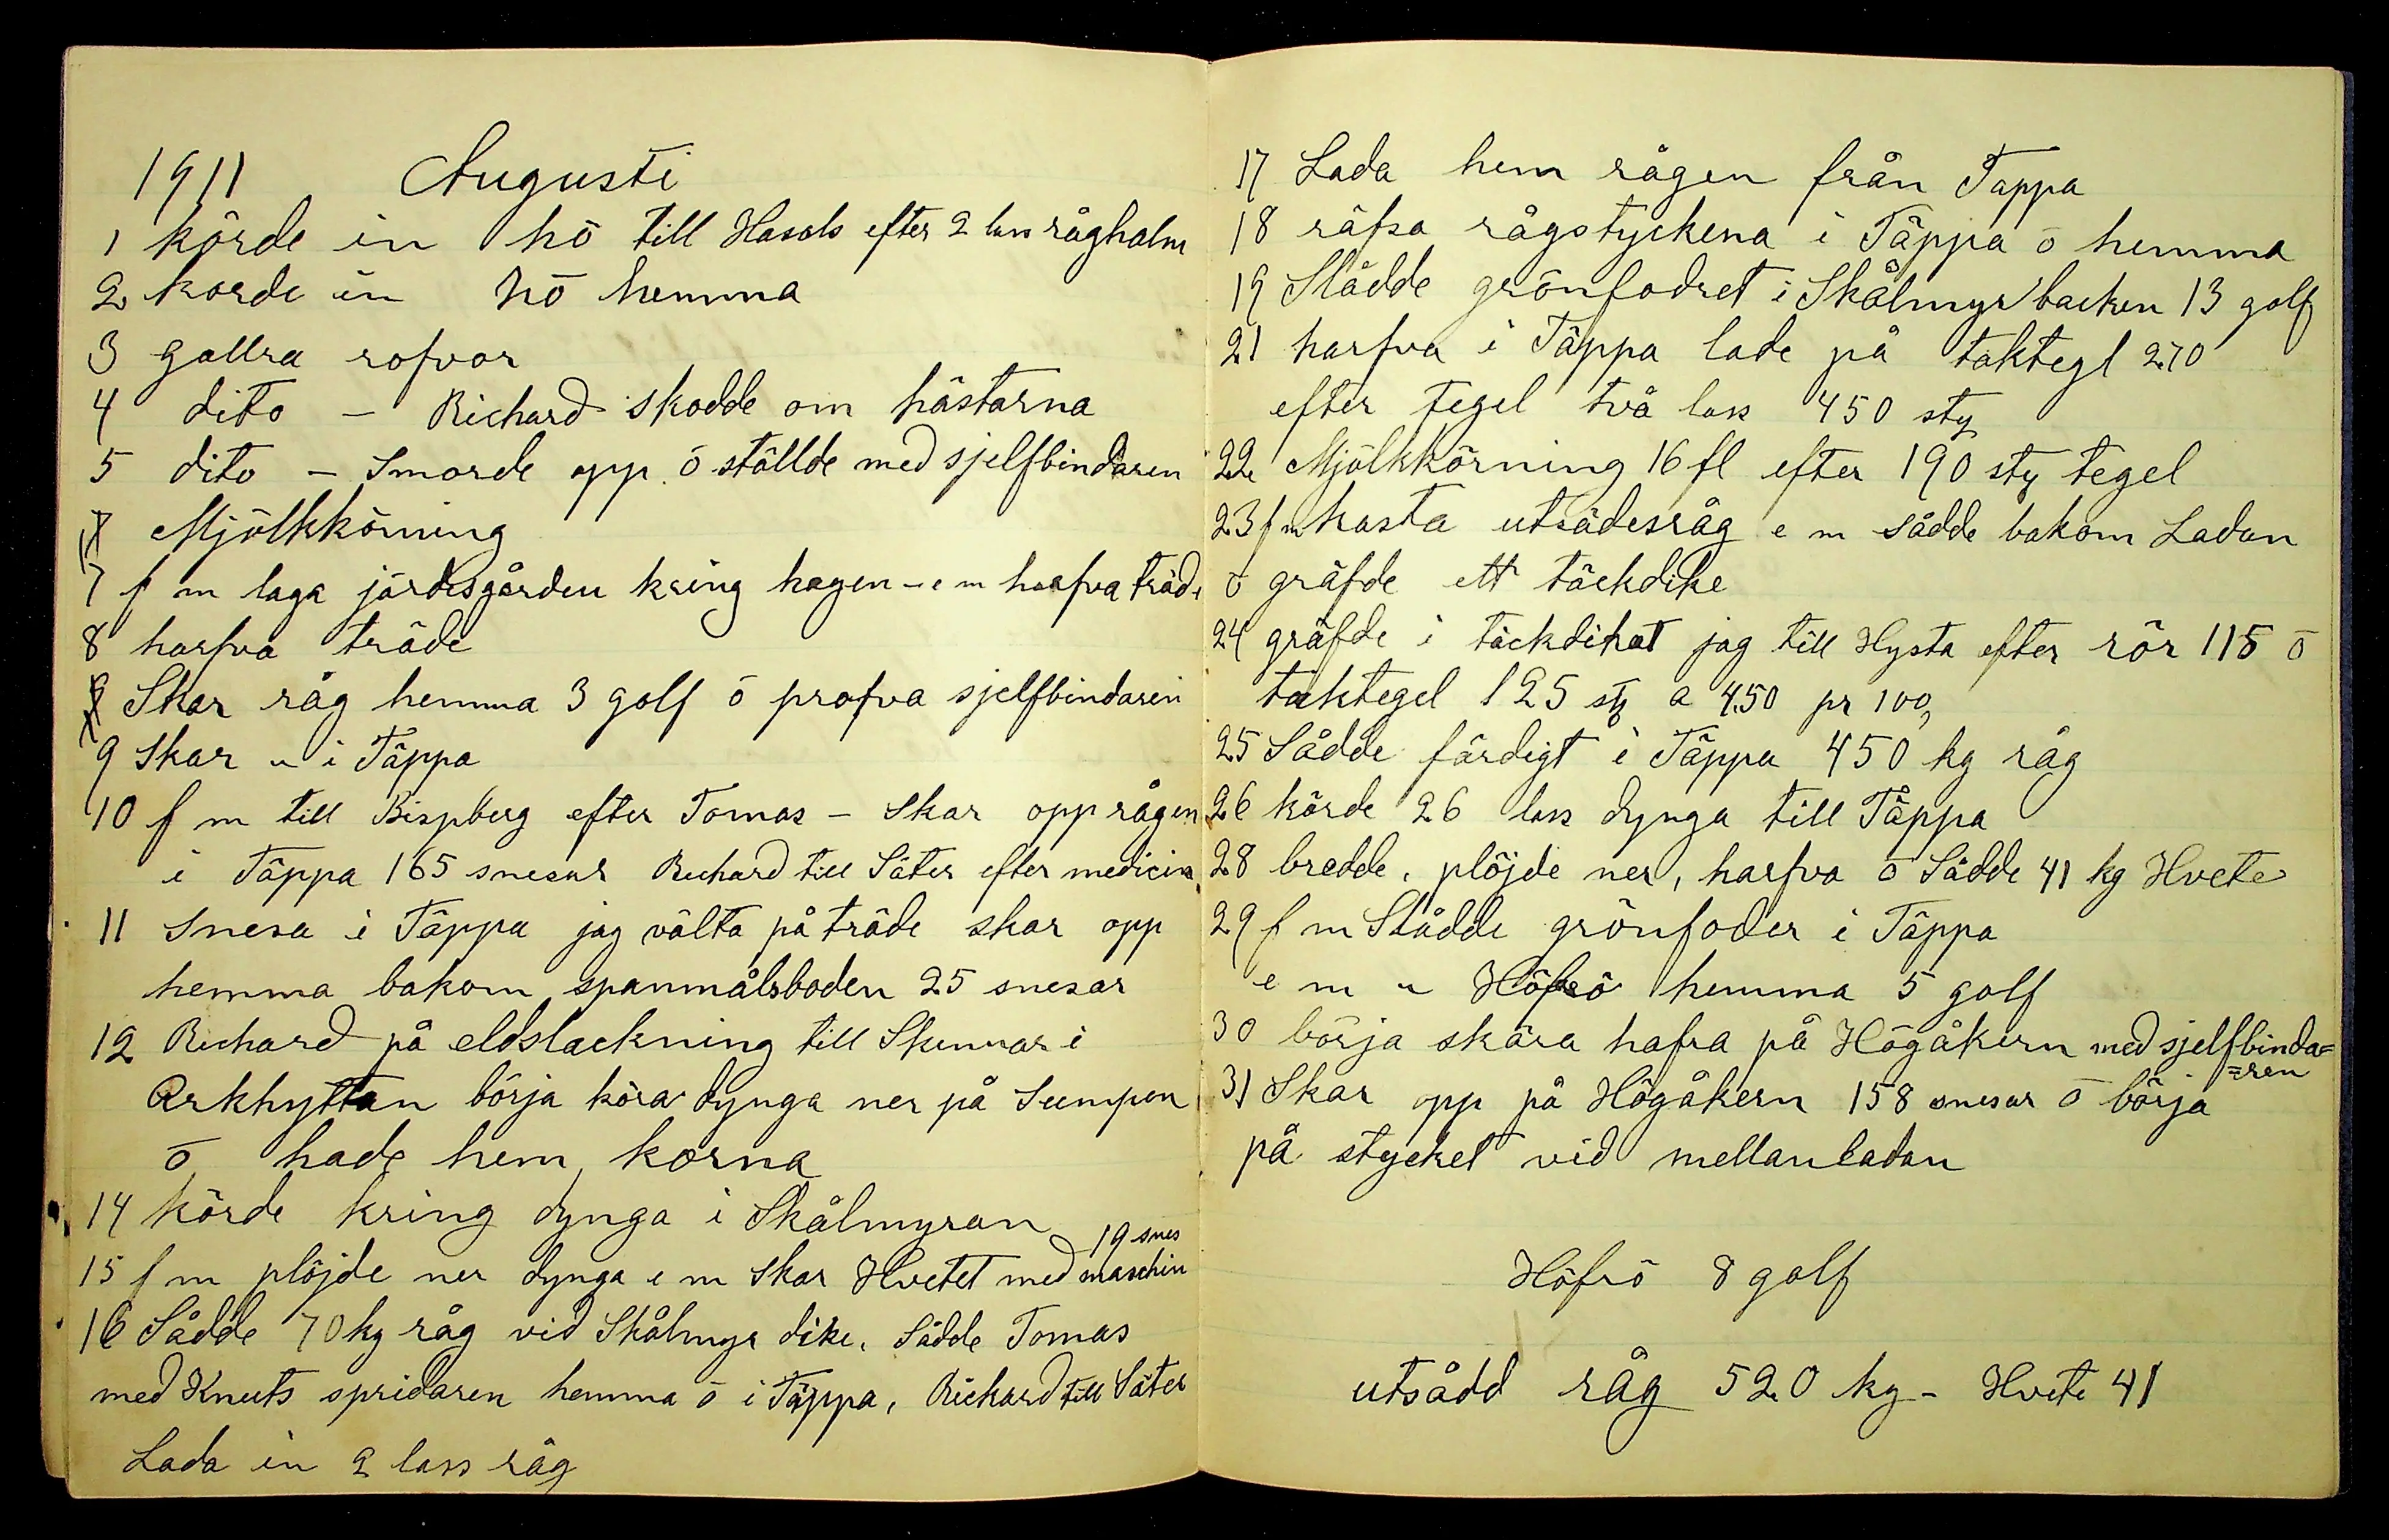 1911 Augusti
1 körde in hö till Hasols efter 2 lass råghalm
2 körde in hö hemma
3 gallra rofvor
4 dito – Richard skodde om hästarna
5 dito – Smorde opp ō ställde med sjelfbindaren
7 Mjölkkörning
7 f m laga järdesgården kring hagen – e m harfva träde
8 harfva träde
9 Skar råg hemma 3 golf ō profva sjelfbindaren
9 Skar " i Täppa
10 f m till Bispberg efter Tomas – Skar opp rågen
i Täppa 165 snesar Richard till Säter efter medicin
11 Snesa i Täppa jag välta på träde skar opp
hemma bakom spanmålsboden 25 snesar
12 Richard på eldslackning till Skinnar i
Arkhyttan börja köra dynga ner på Sumpen
ō hade hem korna
14 körde kring dynga i Skålmyran
19 snes
15 f m plöjde ner dynga e m Skar Hvetet med maschin
16 Sådde 70 kg råg vid Skålmyr dike. Sådde Tomas
med Knuts spridaren hemma ō i Täppa, Richard till Säter
Lada in 2 lass råg
17 Lada hem rågen från Täppa
18 räfsa rågstyckena i Täppa ō hemma
19 Slådde grönfodret i Skålmyrbacken 13 golf
21 harfva i Täppa lade på taktegl 270
efter tegel två lass 450 sty
22 Mjölkkörning 16 fl efter 190 sty tegel
23 f m kasta utsädesråg e m sådde bakom Ladan
ō gräfde ett täckdike
24 gräfde i täckdiket jag till Hysta efter rör 115 ō
taktegel 125 sty a 4.50 pr 100,
25 Sådde färdigt i Täppa 450 kg råg
26 körde 26 lass dynga till Täppa
28 bredde, plöjde ner, harfva ō Sådde 41 kg Hvete
29 f m Slådde grönfoder i Täppa
e m " Höfrö hemma 5 golf
30 börja skära hafra på Högåkern med sjelfbinda=
=ren
31 Skar opp på Högåkern 158 snesar ō börja
på stycket vid mellanladan
Höfrö 8 golf
utsådd råg 520 kg – Hvete 41